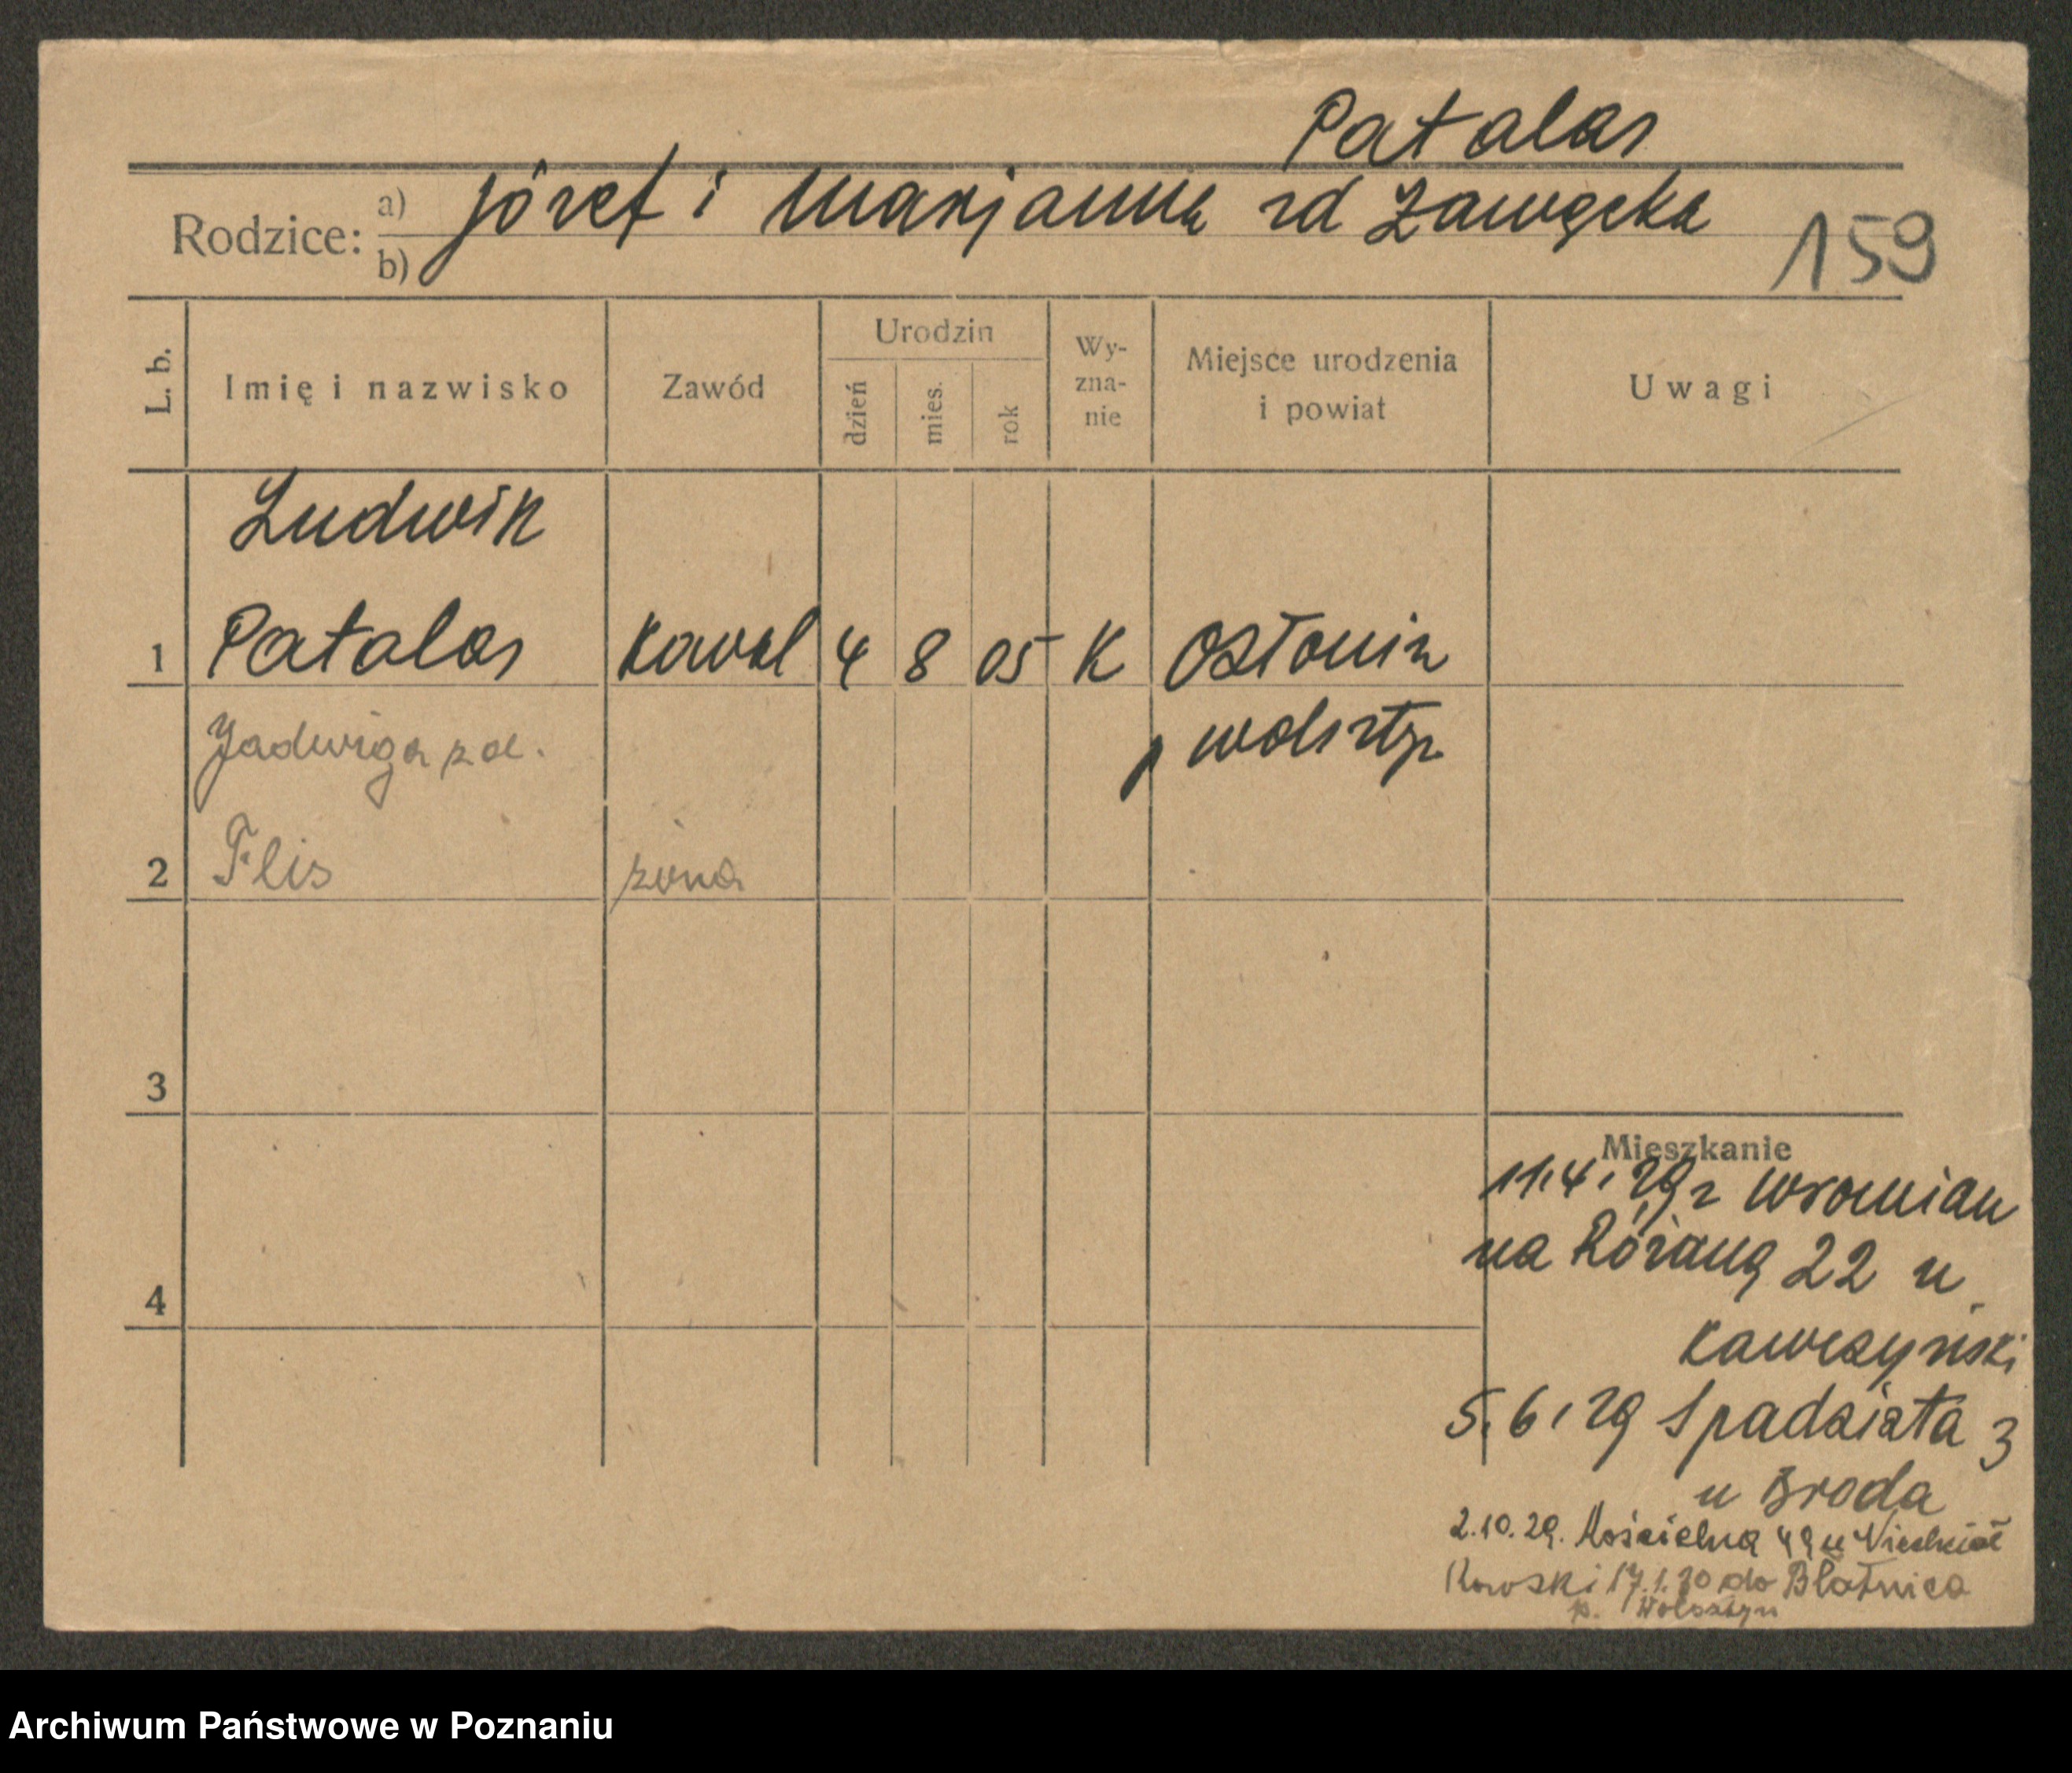 Patalas
Rodzice: a) Józef i Marjanna zd Zawęcka
b)
159
L. b. Imię i nazwisko Zawód Urodzin dzień mies. rok Wy-zna-nie Miejsce urodzenia i powiat Uwagi
Ludwik
1 Patalas Kowal 4 8 05 K Osłonin
p wolsztyn
Jadwiga zd.
2 Flis żona
3
4
Mieszkanie
11.4.29 z Wroniaw
na Różaną 22 u
Kawczyński
5.6.29 Spadzista 3
u Broda
2.10.29. Kościelna 49 u
17.1.30 do Błotnica
p. Wolsztyn
Archiwum Państwowe w Poznaniu